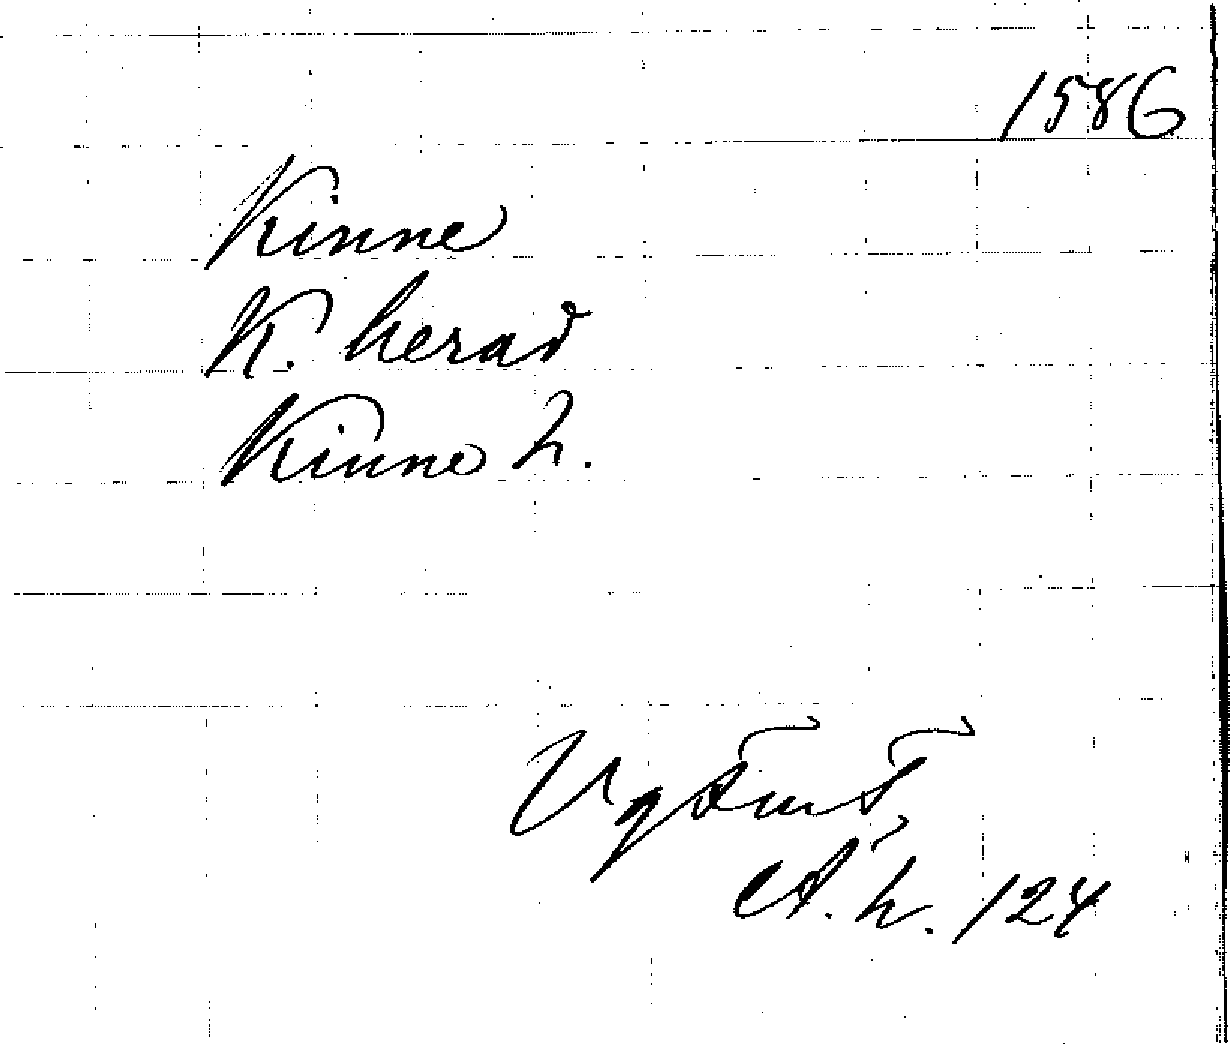 1586
Kinne
K. herad
Kinne h.
A. h. 124